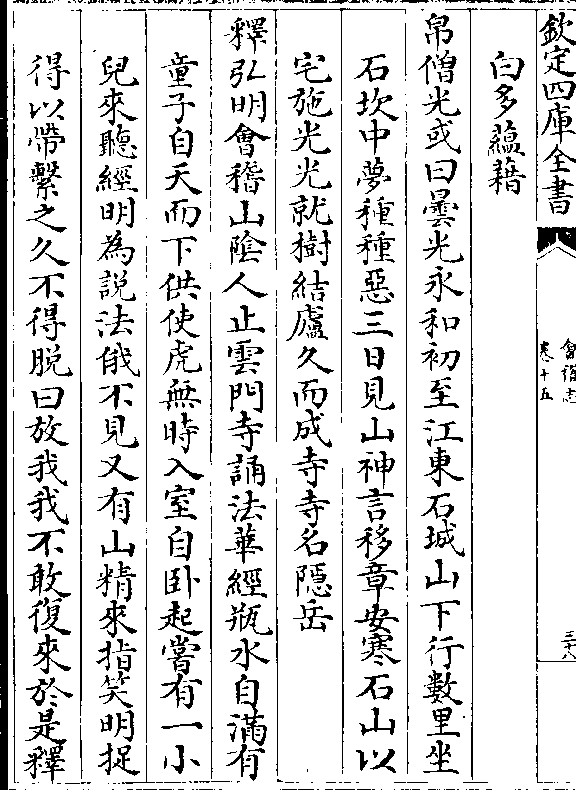 欽定四庫全書
會稽志
卷十五
三十八
白多蘊藉
帛僧光或曰曇光永和初至江東石城山下行數里坐
石坎中夢種種惡三日見山神言移章安寒石山以
宅施光光就樹結廬久而成寺寺名隱岳
釋弘明會稽山陰人止雲門寺誦法華經瓶水自滿有
童子自天而下供使虎無時入室自卧起嘗有一小
兒來聽經明為説法俄不見又有山精來指笑明捉
得以帶繫之久不得脱曰放我我不敢復來於是釋